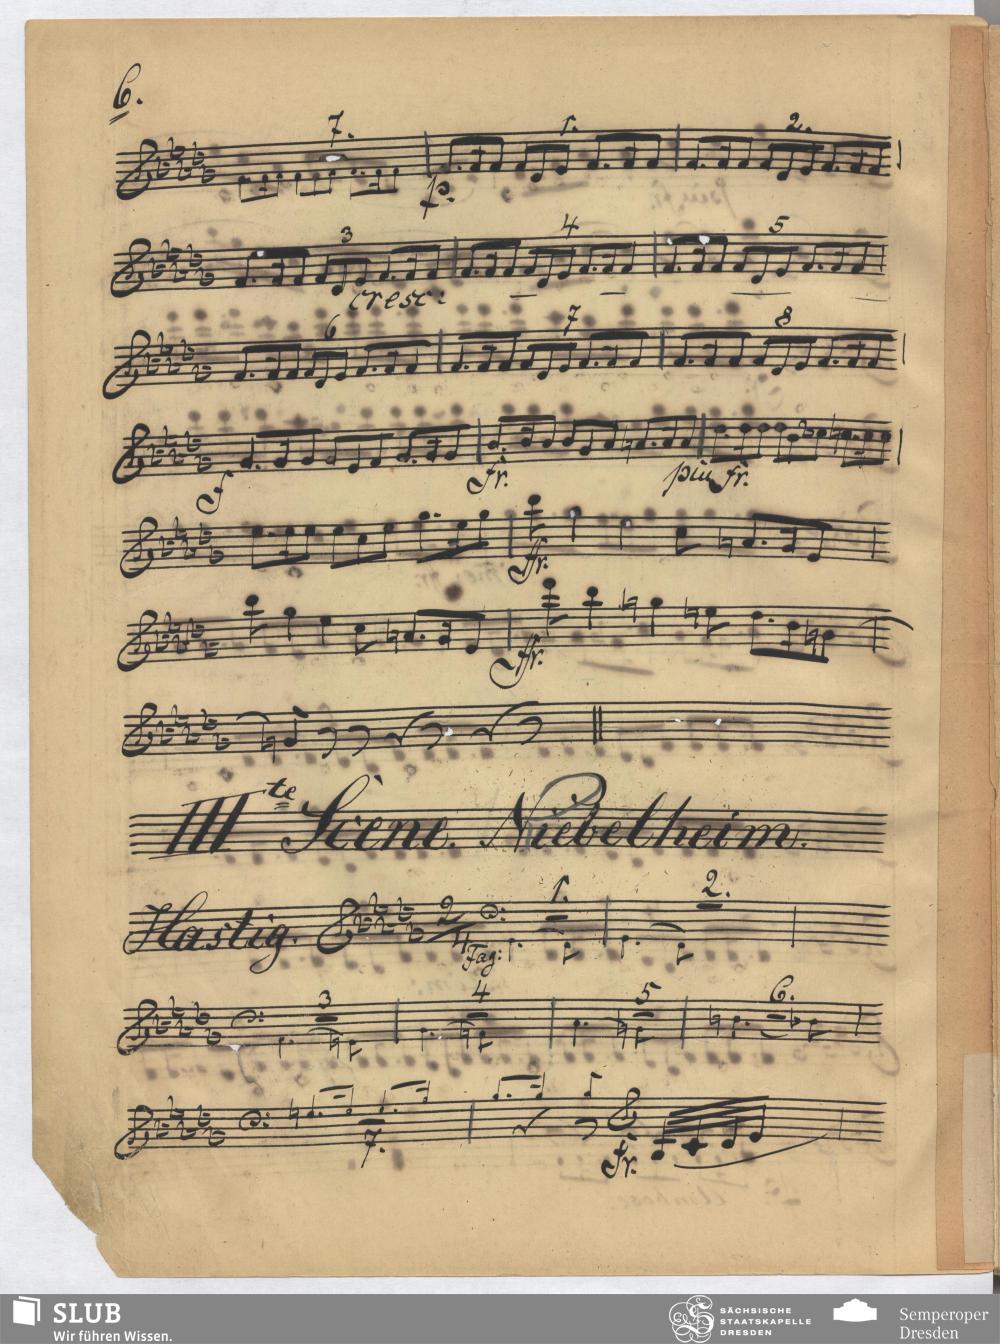 6.
7. 1. 2.
p.
3 4 5
cresc:
6 7 8
f fr. più fr.
ffr.
ffr.
IIIte Scene. Niebelheim.
Hastig. 2/4 1. 2.
Fag:
3 4 5 6.
7.
fr.
SLUB
Wir führen Wissen.
SÄCHSISCHE
STAATSKAPELLE
DRESDEN
Semperoper
Dresden